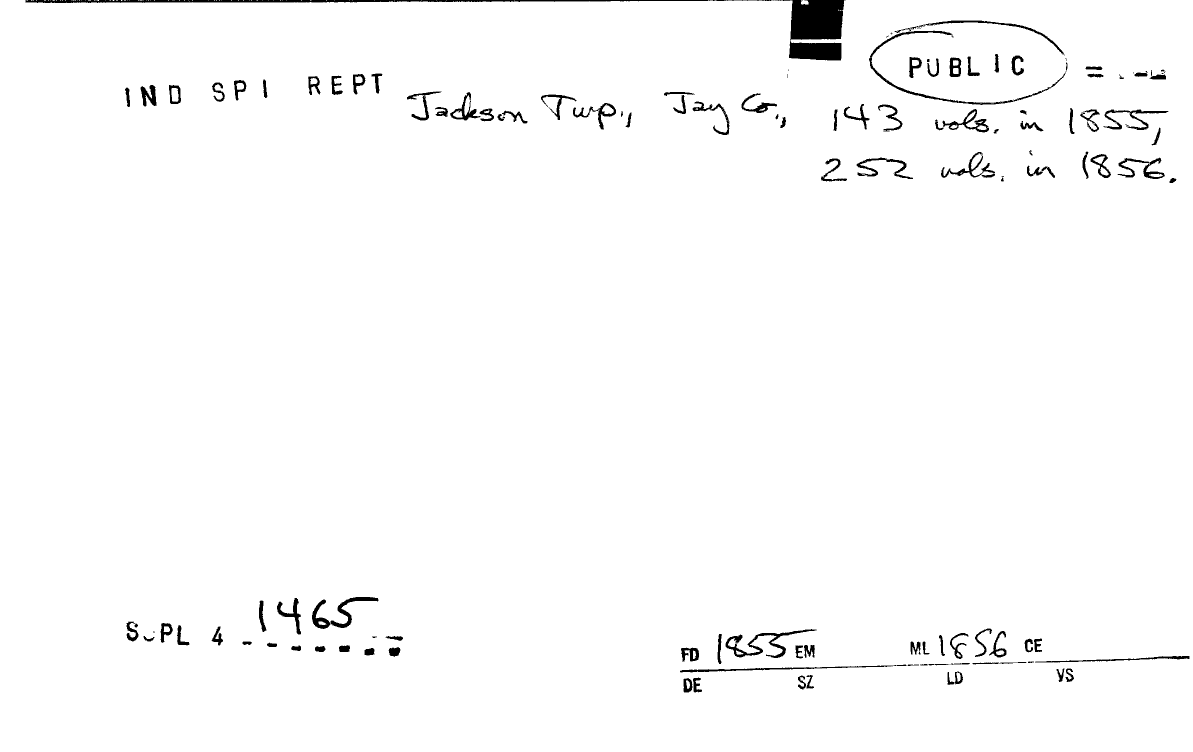 PUBLIC =
IND SPI REPT Jackson Twp., Jay Co., 143 vols. in 1855,
252 vols. in 1856.
SUPL 4 1465
FD 1855 EM ML 1856 CE
DE SZ LD VS